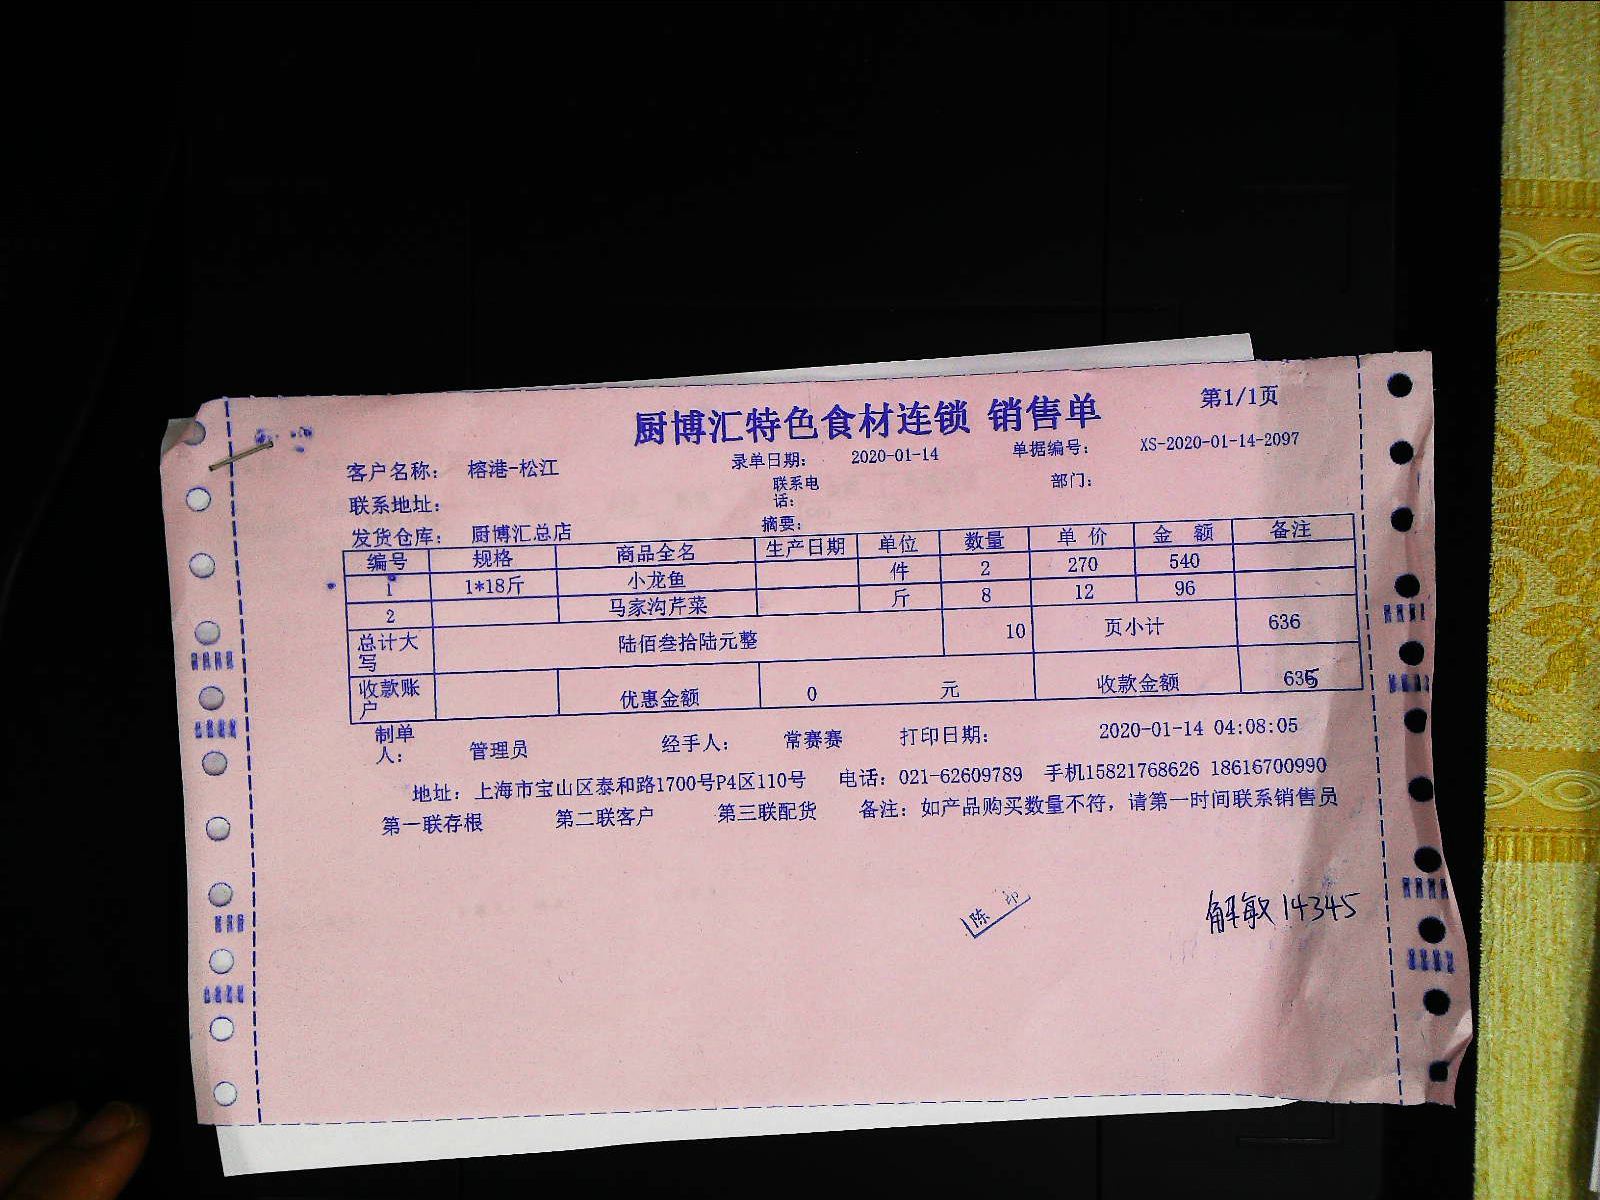 厨博汇特色食材连锁 销售单 第1/1页
客户名称： 榕港-松江 录单日期： 2020-01-14 单据编号： XS-2020-01-14-2097
联系地址： 联系电话： 部门：
发货仓库： 厨博汇总店 摘要：
编号 规格 商品全名 生产日期 单位 数量 单 价 金 额 备注
1 1*18斤 小龙鱼 件 2 270 540
2 马家沟芹菜 斤 8 12 96
总计大写 陆佰叁拾陆元整 10 页小计 636
收款账户 优惠金额 0 元 收款金额 635
制单人： 管理员 经手人： 常赛赛 打印日期： 2020-01-14 04:08:05
地址：上海市宝山区泰和路1700号P4区110号 电话：021-62609789 手机15821768626 18616700990
第一联存根 第二联客户 第三联配货 备注：如产品购买数量不符，请第一时间联系销售员
陈 印
解敏 14345